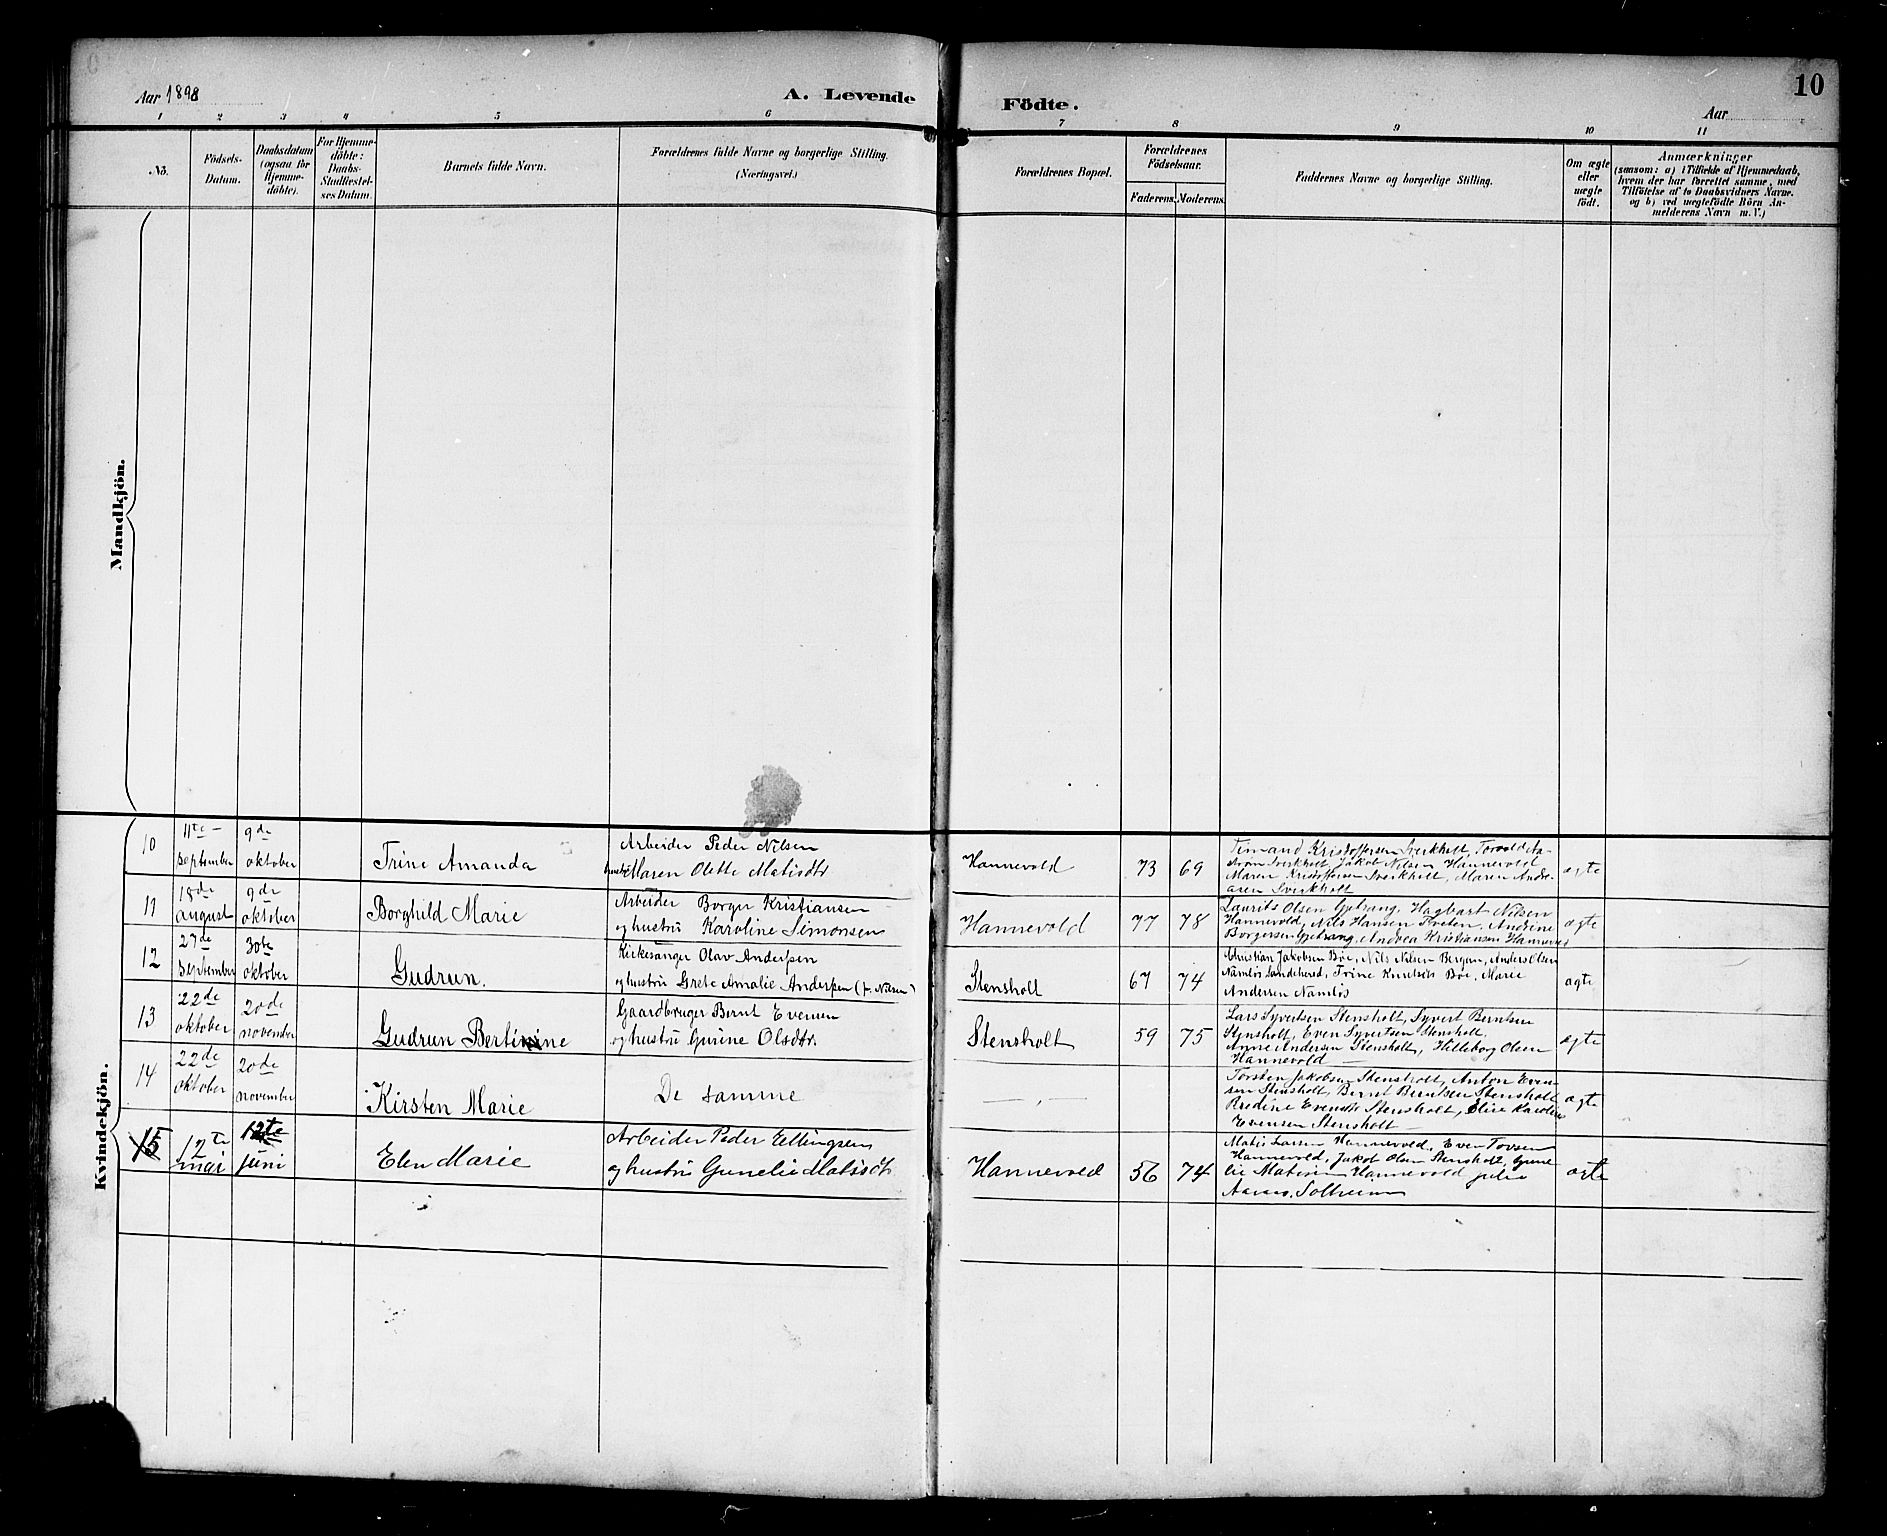 Aar 1898
A. Levende
Födte.
Aar
10
1 2 3 4 5 6 7 8 9 10 11
No.
Födsels-
Datum.
Daabsdatum
(ogsaa for
Hjemme-
döbte).
For Hjemme-
döbte:
Daabs-
Stadfæstel-
ses Datum.
Barnets fulde Navn.
Forældrenes fulde Navne og borgerlige Stilling.
(Næringsvei.)
Forældrenes Bopæl.
Forældrenes
Födselsaar.
Faderens. Moderens.
Faddernes Navne og borgerlige Stilling.
Om ægte
eller
uægte
födt.
Anmærkninger
(saasom: a) i Tilfælde af Hjemmedaab,
hvem der har forrettet samme, med
Tilföielse af to Daabsvidners Navne,
og b) ved uægtefödte Börn An-
melderens Navn m. V.)
Mandkjön.
Kvindekjön.
10
11te
september
9de
oktober
Trine Amanda
Arbeider Peder Nilsen
hustru Maren Olette Matisdtr
Hannevold
73 69
Kristoffersen Sverkholt
Jakob Nilsen Hannevold
Maren Kristoffersen Sverkholt, Maren Andre-
asen Sverkholt
ægte
11
18de
august
9de
oktober
Borghild Marie
Arbeider Borger Kristiansen
og hustru Karoline Simonsen
Hannevold
77 78
Laurits Olsen Gjetrang, Hagbart Nilsen
Hannevold, Nils Hansen Tveten, Andrine
Borgersen Gjetrang, Andrea Kristiansen Hannevold
ægte
12
27de
september
30te
oktober
Gudrun.
Kirkesanger Olav Andersen
og hustru Grete Amalie Andersen (f. Nilsen)
Stensholt
67 74
Christian Jakobsen Böe, Nils Nilsen Bergen, Anders Olsen
Namlös Sandehered, Trine Knutsen Böe, Marie
Andersen Namlös
ægte
13
22de
oktober
20de
november
Gudrun Bertinine
Gaardbruger Bernt Evensen
og hustru Gurine Olsdtr.
Stensholt
59 75
Lars Syvertsen Stensholt, Syvert Berntsen
Stensholt, Even Syvertsen Stensholt
Anne Andersen Stensholt, Hilleborg Olsen
Hannevold
ægte
14
22de
oktober
20de
november
Kirsten Marie
De samme
— „ —
Torsten Jakobsen Stensholt, Anton Even-
sen Stensholt, Bernt Berntsen Stensholt
Evensdtr Stensholt, Elise Karoline
Evensen Stensholt
ægte
15
12te
mai
12te
juni
Elen Marie
Arbeider Peder Ellingsen
og hustru Gunelie Matisdtr
Hannevold
56 74
Matis Larsen Hannevold, Even Torsen
Hannevold, Jakob Olsen Stensholt, Gune-
lie Matisen Hannevold
ægte